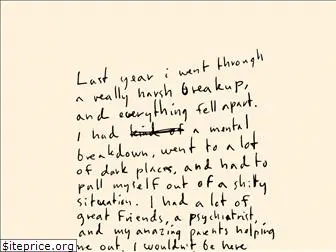 Last year i went through
a really harsh breakup,
and everything fell apart.
I had kind of a mental
breakdown, went to a lot
of dark places, and had to
pull myself out of a shity
situation. I had a lot of
great Friends, a psychiatrist,
and my amazing parents helping
me out, I wouldn't be here
epicpro.org